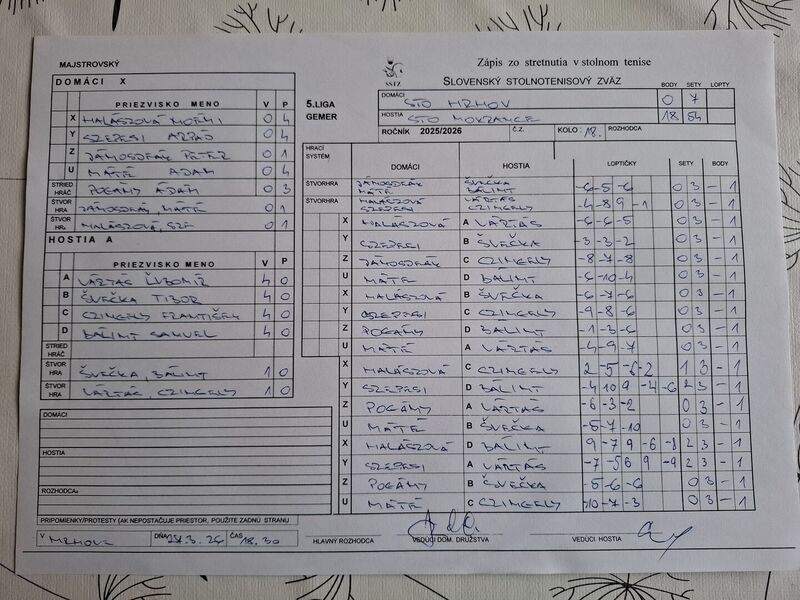 MAJSTROVSKÝ
Zápis zo stretnutia v stolnom tenise
SSTZ
SLOVENSKÝ STOLNOTENISOVÝ ZVÄZ
BODY SETY LOPTY
DOMÁCI X
PRIEZVISKO MENO V P
X HALÁSZOVÁ NOÉMI 0 4
Y SZEPESI ARPÁD 0 4
Z JÁMOSDEÁK PÉTER 0 1
U MÁTÉ ADAM 0 4
STRIED HRÁČ POGÁNY ADAM 0 3
ŠTVOR HRA JÁMOSDEÁK, MÁTÉ 0 1
ŠTVOR HRA HALÁSZOVÁ, SZE 0 1
HOSTIA A
PRIEZVISKO MENO V P
A VÁRTÁS ĽUBOMÍR 4 0
B ŠVEČKA TIBOR 4 0
C CZINGELY FRANTIŠEK 4 0
D BÁLINT SAMUEL 4 0
STRIED HRÁČ
ŠTVOR HRA ŠVEČKA, BÁLINT 1 0
ŠTVOR HRA VÁRTÁS, CZINGELY 1 0
DOMÁCI
HOSTIA
ROZHODCA
PRIPOMIENKY/PROTESTY (AK NEPOSTAČUJE PRIESTOR, POUŽITE ZADNÚ STRANU
V HRHOVE DŇA ČAS 18.30
5.LIGA
GEMER
DOMÁCI STO HRHOV 0 7
HOSTIA STO MOKRANCE 18 54
ROČNÍK 2025/2026 Č.Z. KOLO: 18. ROZHODCA
HRACÍ SYSTÉM DOMÁCI HOSTIA LOPTIČKY SETY BODY
ŠTVORHRA JÁMOSDEÁK MÁTÉ ŠVEČKA BÁLINT -6 -5 -6 0 3 - 1
ŠTVORHRA HALÁSZOVÁ SZEPESI VÁRTÁS CZINGELY -4 -8 9 -1 - 1
X HALÁSZOVÁ A VÁRTÁS -6 -6 -5 0 3 - 1
Y SZEPESI B ŠVEČKA -3 -3 -2 0 3 - 1
Z JÁMOSDEÁK C CZINGELY -8 -7 -8 0 3 - 1
U MÁTÉ D BÁLINT -6 -10 -4 0 3 - 1
X HALÁSZOVÁ B ŠVEČKA -6 -7 -6 0 3 - 1
Y SZEPESI C CZINGELY -9 -8 -6 0 3 - 1
Z POGÁNY D BÁLINT -1 -3 -6 0 3 - 1
U MÁTÉ A VÁRTÁS -4 -9 -7 0 3 - 1
X HALÁSZOVÁ C CZINGELY 2 -5 -6 -2 1 3 - 1
Y SZEPESI D BÁLINT -4 10 9 -4 -6 2 3 - 1
Z POGÁNY A VÁRTÁS -6 -3 -2 0 3 - 1
U MÁTÉ B ŠVEČKA -5 -7 -10 0 3 - 1
X HALÁSZOVÁ D BÁLINT 9 -7 9 -6 -8 2 3 - 1
Y SZEPESI A VÁRTÁS -7 -5 6 9 -9 2 3 - 1
Z POGÁNY B ŠVEČKA -5 -6 -6 0 3 - 1
U MÁTÉ C CZINGELY -10 -7 -3 0 3 - 1
HLAVNÝ ROZHODCA VEDÚCI DOM. DRUŽSTVA VEDÚCI HOSTIA